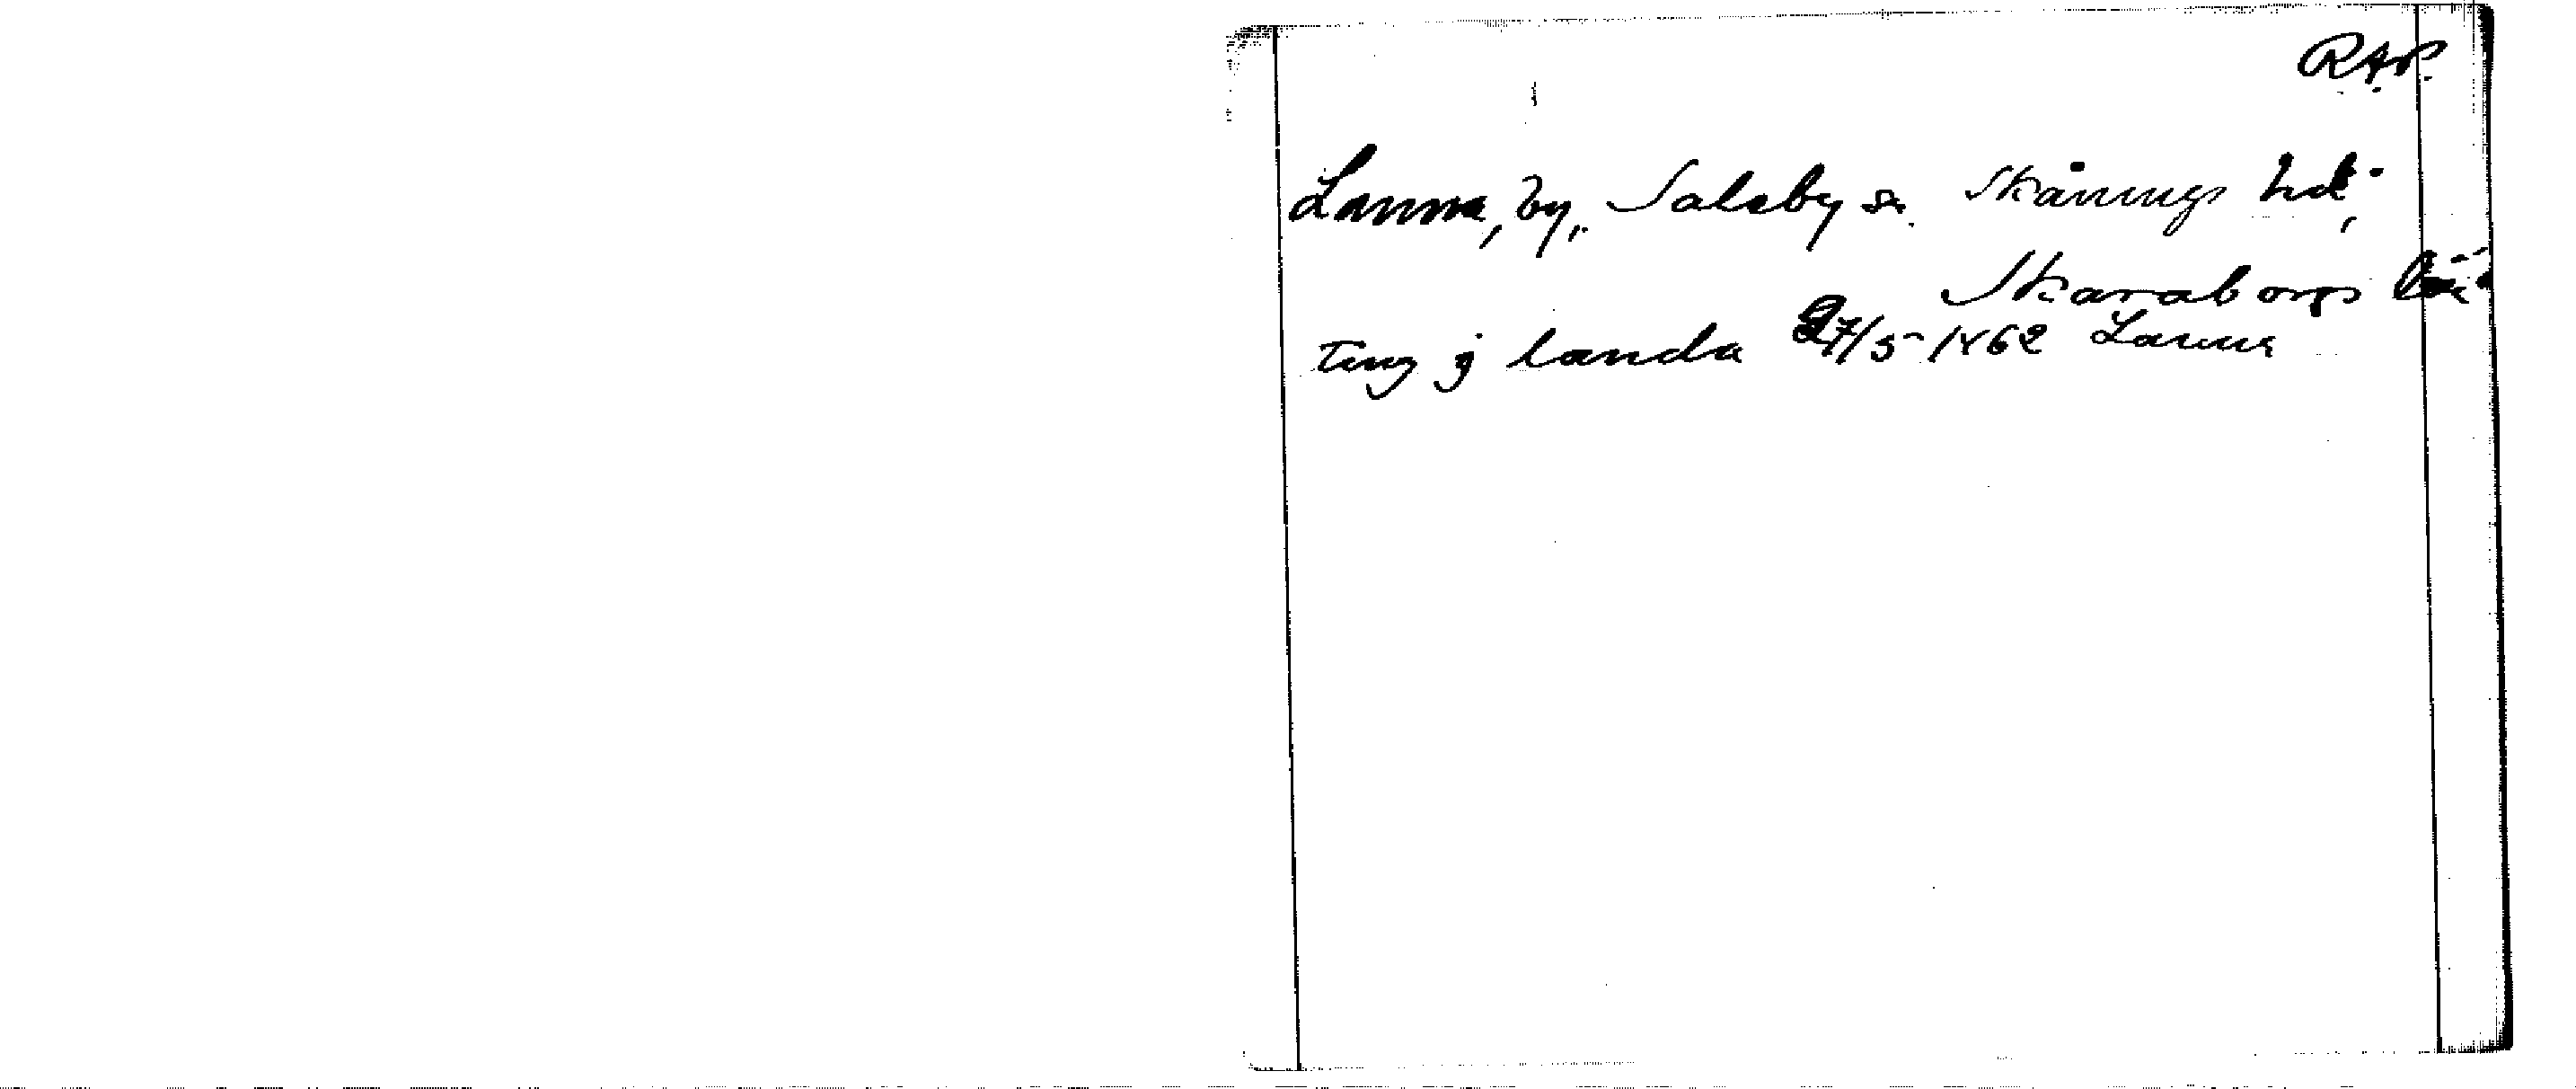 RAP.
Lanna, by, Saleby sn. Skånings hd,
Skaraborgs län
ting j landa 27/5 1462 Lanna